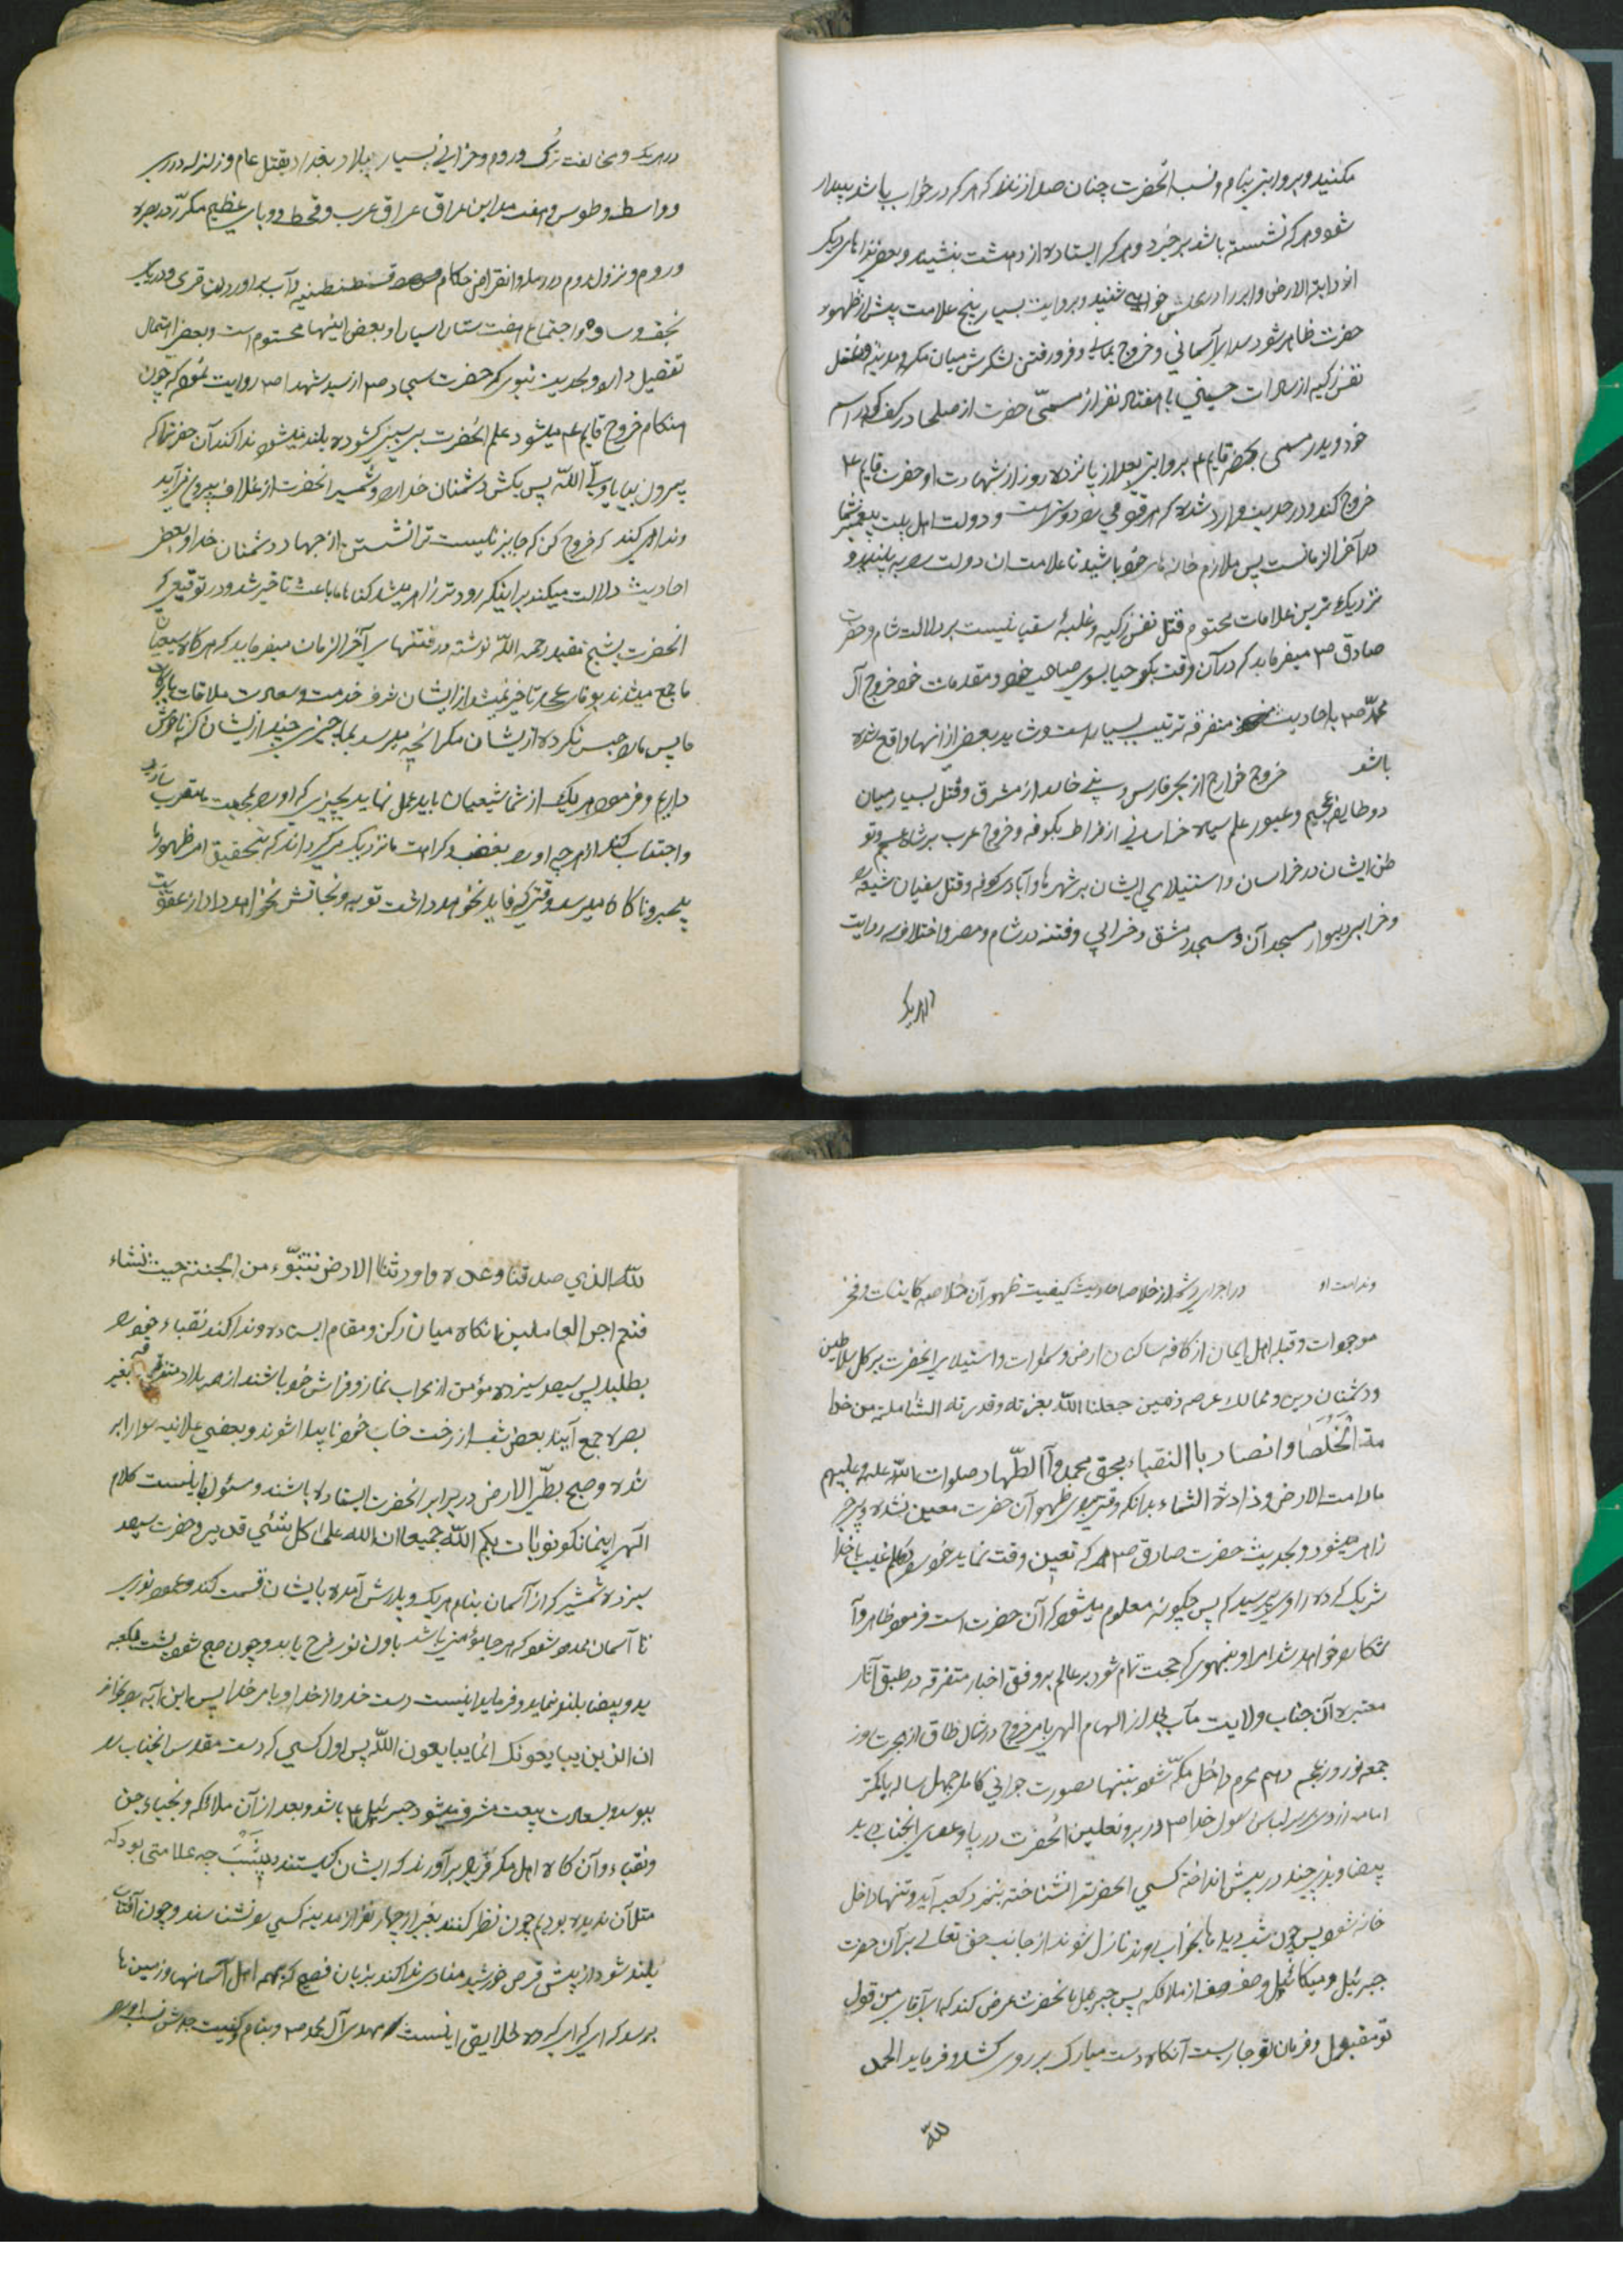 مکنید و بروایتی بنام و نسب آنحضرت چنان صدا زند که هر که در خواب باشد بیدار
شود و هر که نشسته باشد برخیزد و هر که ایستاده از دهشت بنشیند و بعض نداهای دیگر
از دابة الارض و ابر را در محلش خواهی شنید و بروایت بسیار پنج علامت پیش از ظهور
حضرت ظاهر شود صدای آسمانی و خروج یمانی و فرو رفتن لشکرش میان مکه و مدینه و قتل
نفس زکیه از سادات حسینی با هفتاد نفر از مسمّی حضرت از صلحا در کوفه که در اسم
خود و پدر مسمی بحضرت قایم ع بروایتی بعد از پانزده روز از شهادت او حضرت قایم ع
خروج کند و در حدیث وارد شده که هر قومی را دولتی است و دولت اهل بیت پیغمبر شما
در آخر الزمانست پس ملازم خانه‌های خود باشید تا علامت آن دولت را به بینید و
نزدیک ترین علامات محتوم قتل نفس زکیه و غلبهٔ سفیانیست بر ولایت شام و حضرت
صادق ص میفرماید که در آن وقت بکوچید بسوی صاحب خود و مقدمات خود خروج آل
محمّد ص باحادیث متفرقه ترتیب بسیار است و شاید بعض از انها واقع شده
باشد خروج خوارج از بحر فارس و خالد از مشرق و قتل بسیار میان
دو طایفه عجم و عبور علم سیاه خراسانی از فراط بکوفه و خروج عرب بر شاه عجم و تو
طن ایشان در خراسان و استیلای ایشان بر شهرها و آبادی کوفه و قتل سفیان شیعه را
و خرابی دیوار مسجد آن و مسجد دمشق و خرابی و فتنه در شام و مصر و اختلاف سه رایت
در هر یک
در هر یک و مخالفت ترک و روم و خرابی بسیار ببلاد بغداد بقتل عام و زلزله در ری
و واسطه و طوس و هفت مداین عراق عراق عرب و قحطی و وبای عظیم مکرّر در بصره
و روم و نزول روم در رمله و انقراض حکام قسطنطنیه و آب براوردن قری و در یک
نجف و ساوه و اجتماع هفت ستاره سیار و بعض اینها محتوم است و بعض احتمال
تفصیل دارد و بحدیث نبوی که حضرت سجاد ص از سید شهدا ص روایت نموده که چون
هنکام خروج قایم ع میشود علم آنحضرت بی سبب کشوده بلند میشود ندا کند آن حضرت را که
بیرون بیا یا ولیّ اللّه پس بکش دشمنان خدا را و شمشیر آنحضرت از غلاف بیرون آید
و ندا کند که خروج کن که جایز نیست ترا نشستن از جهاد دشمنان خدا و بعض
احادیث دلالت میکند بر اینکه زودتر ظاهر میشد کناه ما باعث تاخیر شد و در توقیعی که
آنحضرت بشیخ مفید رحمه اللّه نوشته در فتنهای آخر الزمان میفرماید که هر کاه شیعیان
ما جمع میشدند بوفای عهد تاخیر نمیشد از ایشان شرف خدمت و سعادت ملاقات با برکات
ما پس ما را حبس نکرده از ایشان مکر آنچه میرسد بما چیزی چند از ایشان که ناخوش
داریم و فرمود هر یک از شما شیعیان باید عمل نماید بچیزی که او را بمحبت ما مقرب سازد
و اجتناب کند از هر چه او را بغضب و کراهت ما نزدیک میکرداند که بتحقیق امر ظهور ما
بیخبر و ناکاه میرسد وقتی که فایده نخواهد داشت توبه و نجاتش نخواهد داد از عقوبت
و ندامت او در اجرای خلاصه احادیث کیفیت ظهور آن خلاصه کاینات و فخر
موجودات و قبله اهل ایمان از کافه ساکنان ارض و سموات و استیلای آنحضرت بر کل سلاطین
و دشمنان دین و ممالک عرصه زمین جعلنا اللّه بعزته و قدرته الشاملة من خدا
مة الخُلَصا و انصار باالنقباء بحق محمد و آاالطّهار صلوات اللّه علیه و علیهم
مادامت الارض و ذادة السّماء بدانکه وقتی برای ظهور آن حضرت معین نشده و بیخبر
ظاهر میشود و بحدیث حضرت صادق ص هر که تعیین وقت نماید خود را در علم غیب با خدا
شریک کرده راوی پرسید که پس چکونه معلوم میشود که آن حضرت است فرمود ظاهر و آ
شکار خواهد شد امر او بنحوی که حجت تمام شود بر عالم بر وفق اخبار متفرقه در طبق آثار
معتبره آن جناب ولایت مآب بعد از الهام الهی بامر خروج در سال طاق از هجرت روز
جمعه نوروز عجم دهم محرم داخل مکّه شود تنها بصورت جوانی کامل چهل ساله یا کمتر
عمامه زردی بر سر لباس رسول خدا ص در بر و نعلین آنحضرت در پا و عصای آنجناب در ید
بیضا و بزی چند در پیش انداخته کسی آنحضرترا نشناخته بنزد کعبه آید و تنها داخل
خانه شود پس چون شب دیده‌ها بخواب روند نازل شوند از جانب حق تعالی بر آن حضرت
جبرئیل و میکائیل و صف صف از ملائکه پس جبرئیل بآنحضرت عرض کند که ای آقای من قول
تو مقبول و فرمان تو جاریست آنکاه دست مبارک بر روی کشد و فرماید الحمد
للّه
للّه الذی صدقنا وعده و اورثنا الارض نتبوّء من الجنة حیث نشاء
فنعم اجر العاملین انکاه میان رکن و مقام ایستاده و ندا کند نقباء خود را
بطلبد پس سیصد سیزده مؤمن از محراب نماز و فراش خود باشند از هر بلاد متفرقه بغیر
بصره جمع آیند بعض شب از رخت خاب خود ناپیدا شوند و بعضی علانیه سوار ابر
شده و صبح بطّی الارض در برابر آنحضرت ایستاده باشند و مسئول اینست کلام
الهی اینما تکونوا یات بکم اللّه جمیعا ان اللّه علی کل شئی قدیر و حضرت سیصد
سیزده شمشیر که از آسمان بنام هر یک و پدرش آمده بایشان قسمت کند و عمود نوری
تا آسمان بلند شود که هر جا مؤمنی باشد باون نور فرح یابد و چون صبح شود پشت بکعبه
ید و بیضا بلند نماید و فرماید اینست دست خدا و از خدا و بامر خدا پس این آیه را بخواند
ان الذین یبایعونک انما یبایعون اللّه پس اول کسی که دست مقدس آنجناب را
ببوسد و بسعادت بیعت مشرف میشود جبرئیل ع باشد و بعد از آن ملائکه و نجباء جن
و نقباء و آن کاه اهل مکه فریاد برآورند که ایشان کیستند چه علامتی بود که
مثل آن ندیده بودیم چون نظر کنند بغیر از چهار نفر از مدینه کسی را نشناسند و چون آفتاب
بلند شود از پیش قرص خورشید منادی ندا کند بزبان فصیح که بهمه اهل آسمانها و زمین‌ها
برسد که ای کروه خلایق اینست مهدی آل محمد ص و بنام و کنیت جدش